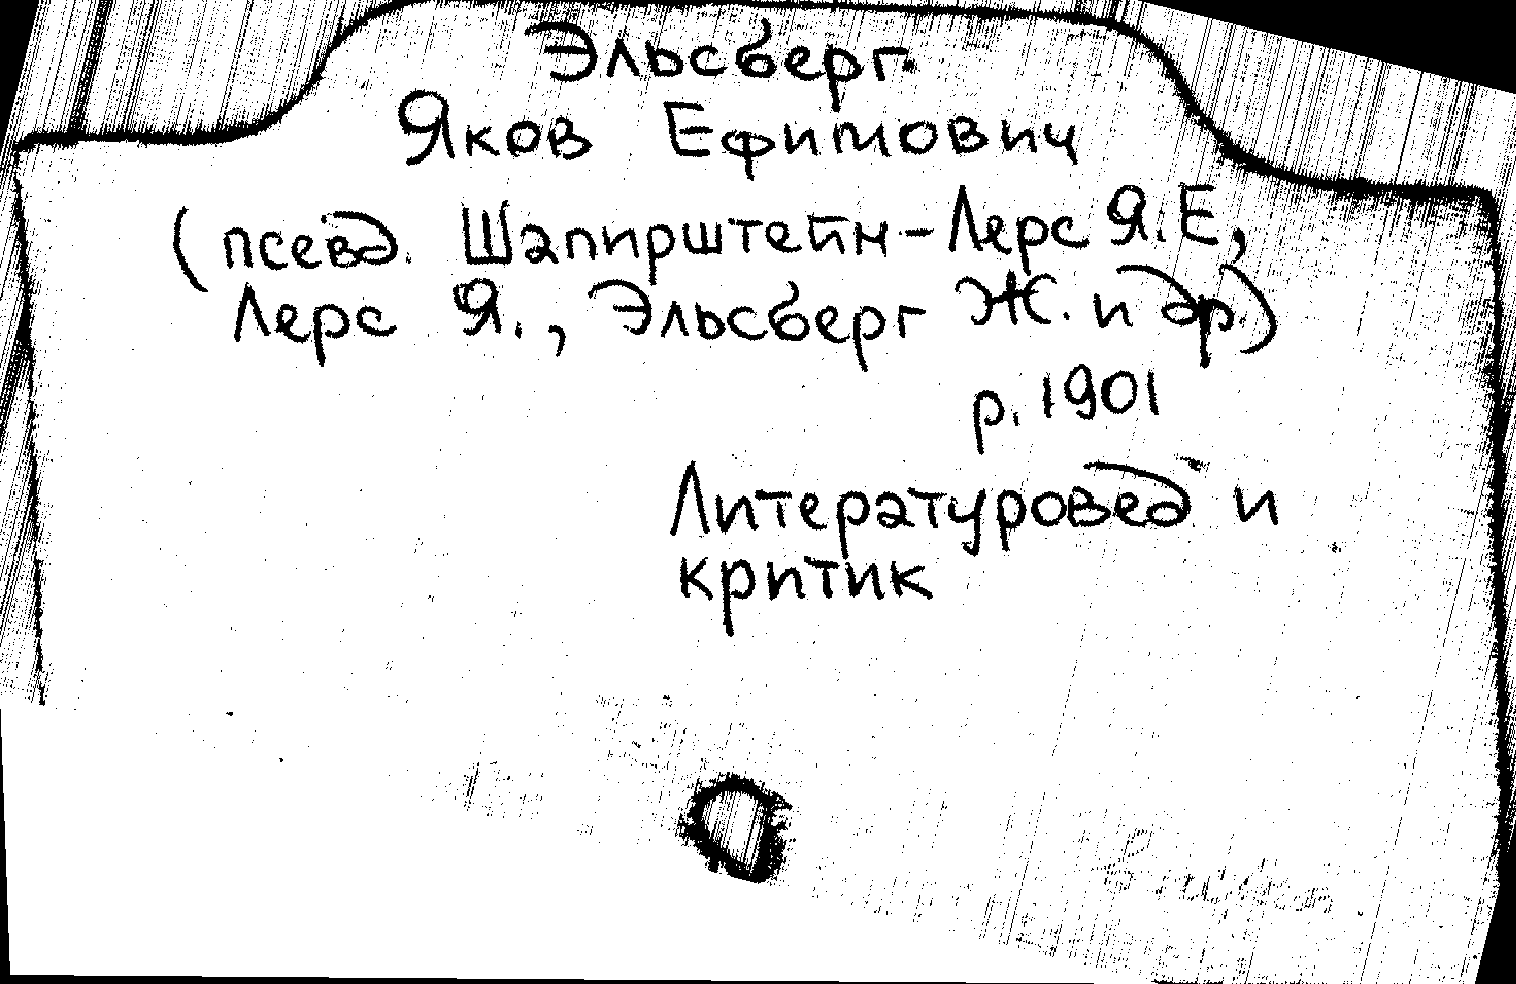 Эльсберг
Яков Ефимович
(псевд. Шапирштейн-Лерс Я.Е,
Лерс Я., Эльсберг Ж. и др.)
р. 1901
Литературовед и
критик